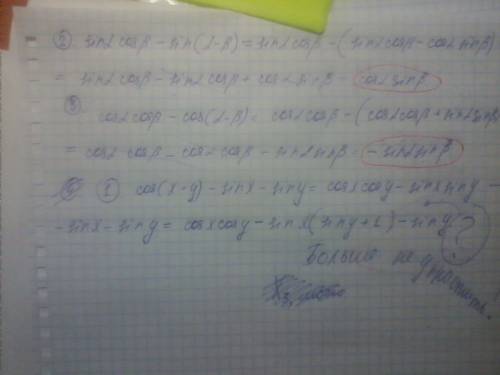 ② sinα cosβ - sin(α-β) = sinα cosβ - (sinα cosβ - cosα sinβ)
= sinα cosβ - sinα cosβ + cosα sinβ = cosα sinβ
cosα cosβ - cos(α-β) = cosα cosβ - (cosα cosβ + sinα sinβ
= cosα cosβ - cosα cosβ - sinα sinβ = - sinα sinβ
① cos(x-y) - sinx - siny = cosx cosy - sinx siny -
- sinx - siny = cosx cosy - sinx(siny+1) - siny ?
Больше не упростить!